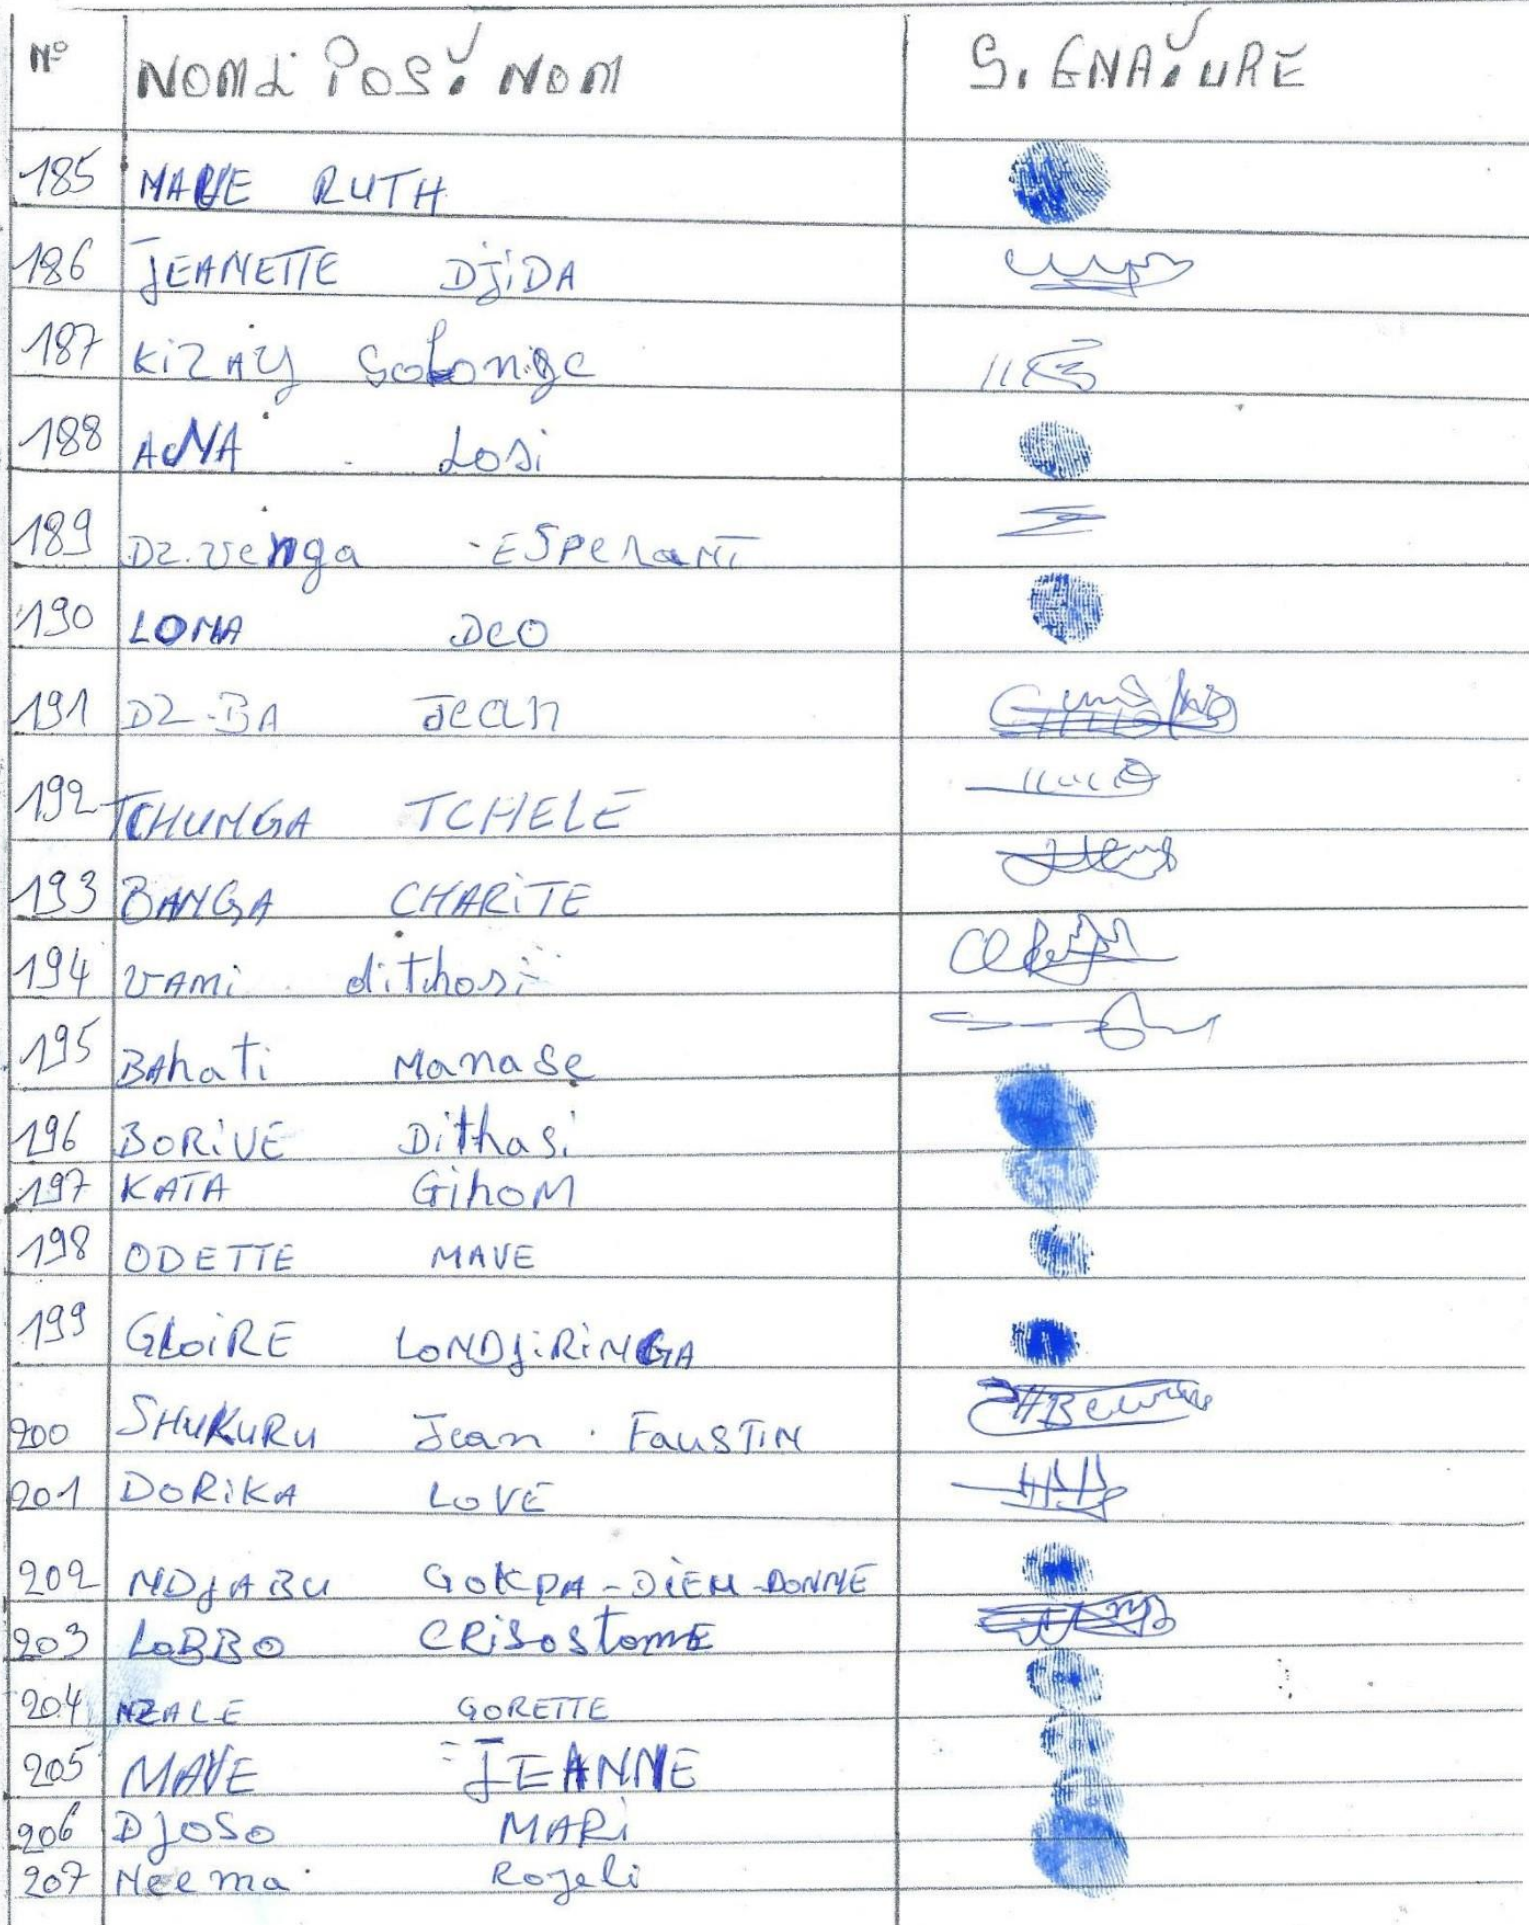 N° NOM & POSTNOM SIGNATURE
185 MAVE RUTH
186 JEANETTE DJiDA
187 KiZAY
188 Losi
189 DZ.venga ESPeRaNT
190 LOMA DeO
191 DZ-BA Jean
192 TCHUNGA TCHELE
193 BANGA CHARiTE
194 VAMi dithosi
195 BAhati Manase
196 BORiVE Dithasi
197 KATA GihoM
198 ODETTE MAVE
199 GLOiRE LONDJiRiNGA
200 SHUKURU Jean FAUSTiN
201 DORiKA LOVE
202 NDJABU GOKPA-DiEU-DONNE
203 LOBBO CRiSOStomE
204 NZALE GORETTE
205 MAVE JEANNE
206 DJOSO MARi
207 Neema Rojeli